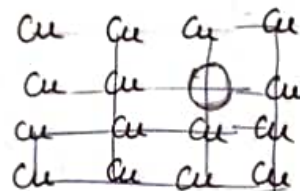 Cu Cu Cu Cu
Cu Cu Cu
Cu Cu Cu Cu
Cu Cu Cu Cu